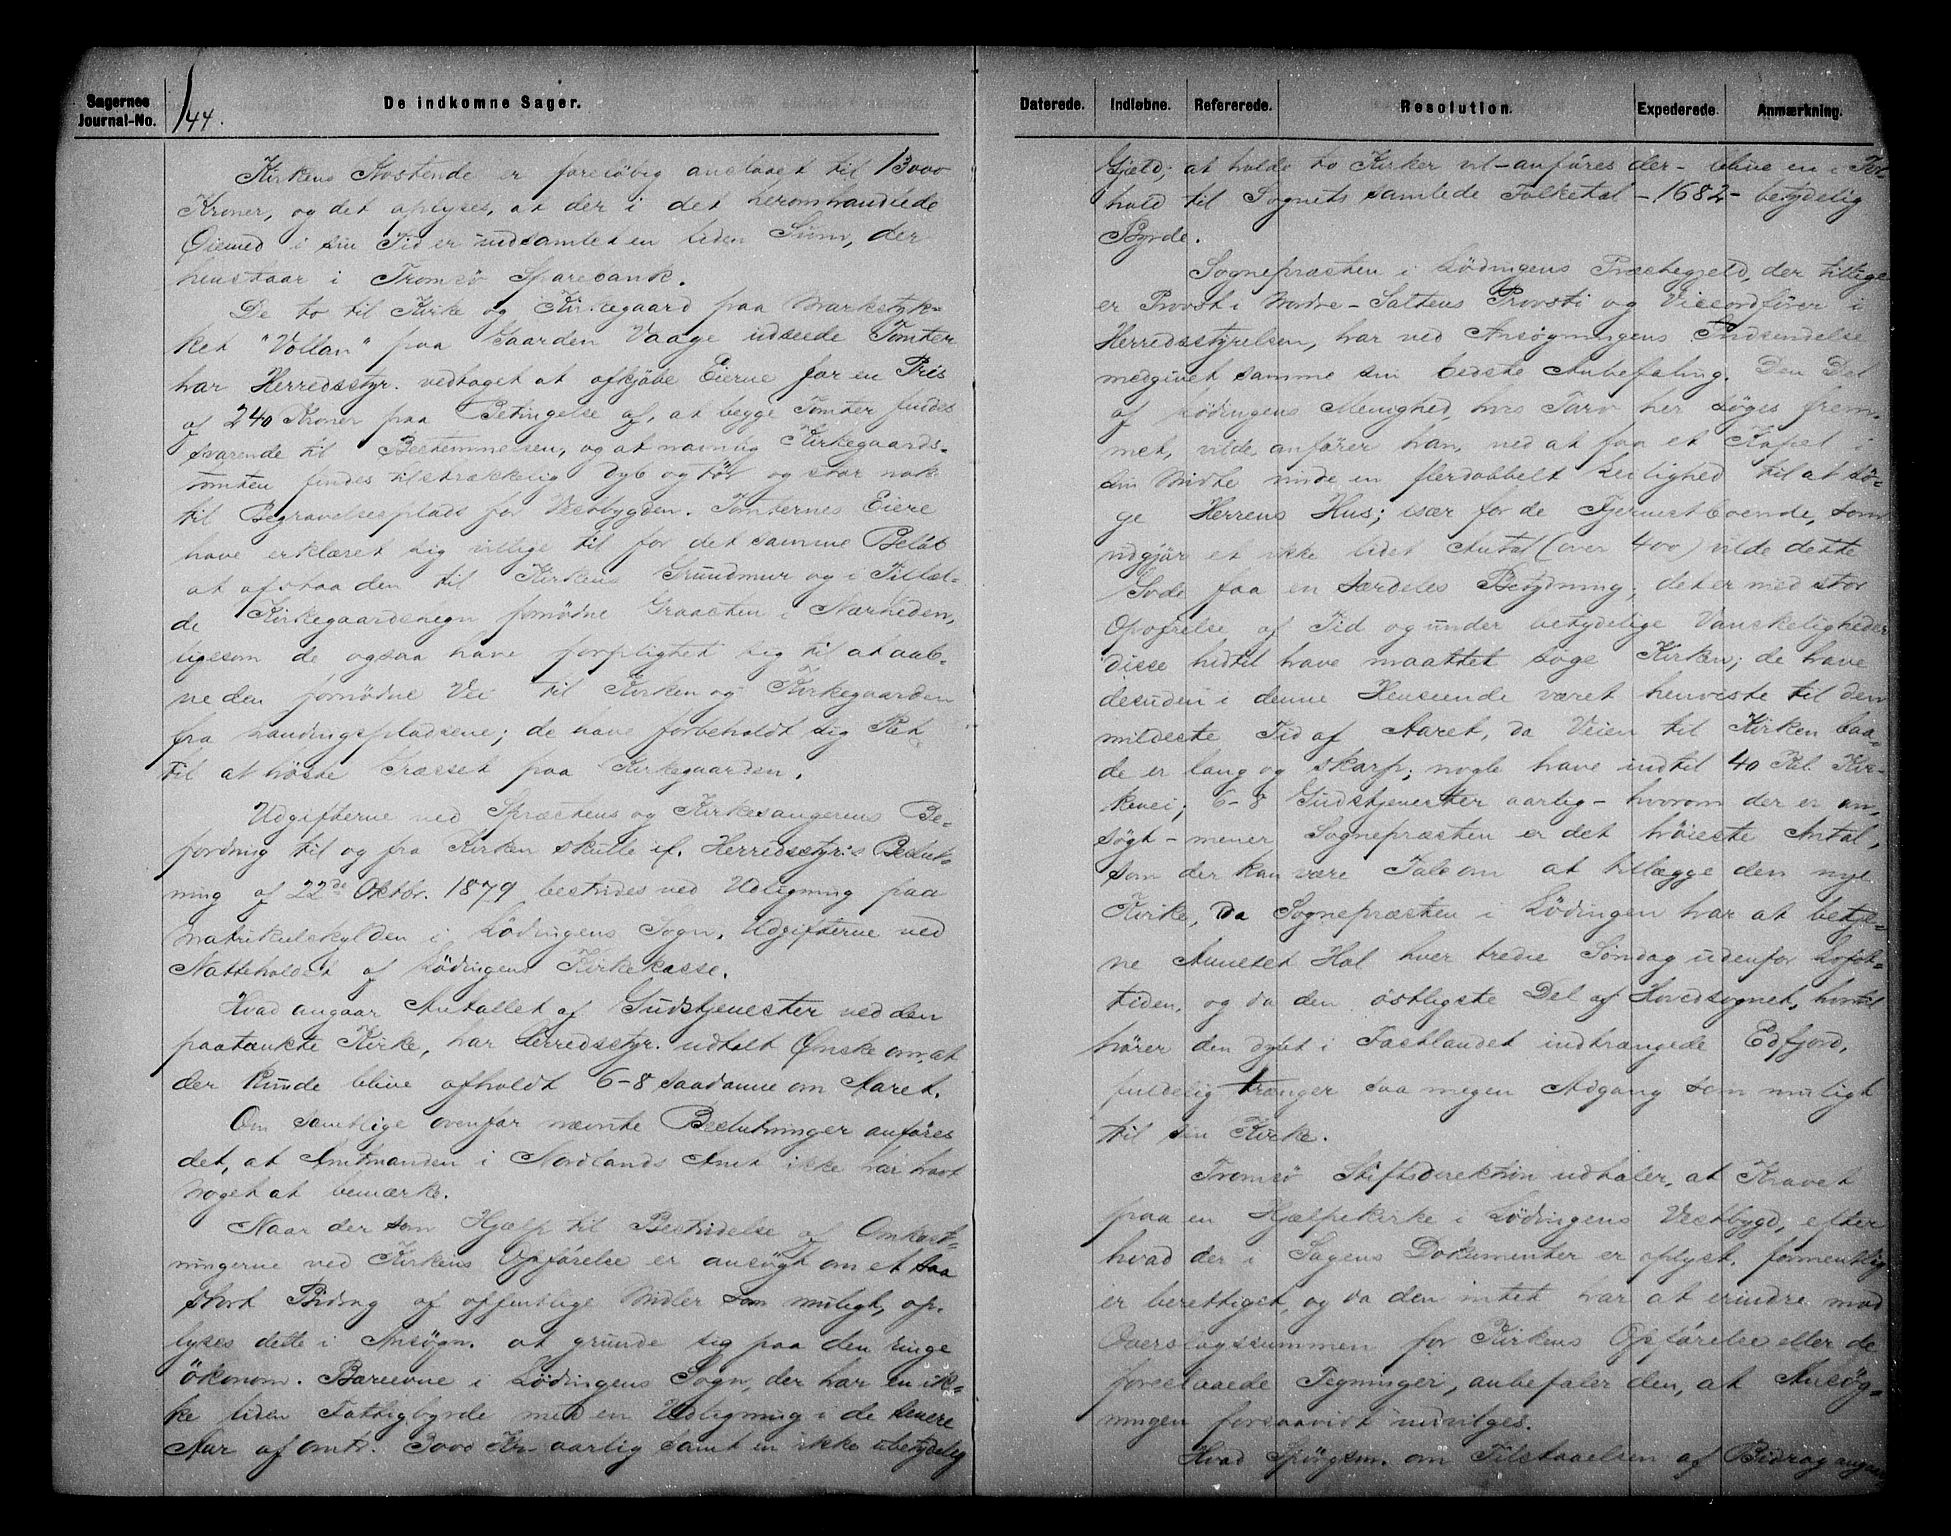 Sagernes
Journal-No.
144.
De indkomne Sager.
Kirkens Kostende er foreløbig anslaaet til 13000
Kroner, og det oplyses, at der i det heromhandlede
Øiemed i sin Tid er indsamlet en liden Sum, der
henstaar i Tromsø Sparebank.
De to til Kirke og Kirkegaard paa Markstyk-
ket "Vollan" paa Gaarden Vaage udseede Tomter
har Herredsstyr. vedtaget at afkjøbe Eierne for en Pris
af 240 Kroner paa Betingelse af, at begge Tomter findes
svarende til Bestemmelsen, og at navnlig Kirkegaards-
tomten findes tilstrækkelig dyb og tør og stor nok
til Begravelsesplads for Vestbygden. Tomternes Eiere
have erklæret sig villige til for det samme Beløb
at afstaa den til Kirkens Grundmur og i Tilfæl-
de Kirkegaardshegn fornødne Graasten i Nærheden,
ligesom de ogsaa have forpligtet sig til at aab-
ne den fornødne Vei til Kirken og Kirkegaarden
fra Landingspladsene; de have forbeholdt sig Ret
til at høste Græsset paa Kirkegaarden.
Udgifterne ved Præstens og Kirkesangerens Be-
fordring til og fra Kirken skulle if. Herredsstyr.s Beslut-
ning af 22de Oktbr. 1879 bestrides ved Udligning paa
Matrikulskylden i Lødingens Sogn, Udgifterne ved
Natteholdet af Lødingens Kirkekasse.
Hvad angaar Antallet af Gudstjenester ved den
paatænkte Kirke, har Herredsstyr. udtalt Ønske om, at
der kunde blive afholdt 6-8 saadanne om Aaret.
Om samtlige ovenfor nævnte Beslutninger anføres
det, at Amtmanden i Nordlands Amt ikke har havt
Noget at bemærke.
Naar der som Hjælp til Bestridelse af Omkost-
ningerne ved Kirkens Opførelse er ansøgt om et saa
stort Bidrag af offentlige Midler som muligt, op-
lyses dette i Ansøgn. at grunde sig paa den ringe
økonom. Bæreevne i Lødingens Sogn, der har en ik-
ke liden Fattigbyrde med en Udligning i de senere
Aar af omtr. 3000 Kr. aarlig samt en ikke ubetydelig
Daterede.
Indløbne.
Refererede.
Resolution.
Expederede.
Anmærkning.
Gjeld; at holde to Kirker vil - anføres der - blive en i For-
hold til Sognets samlede Folketal - 1682 - betydelig
Byrde.
Sognepræsten i Lødingens Præstegjeld, der tillige
er Provst i Nordre-Saltens Provsti og Viceordfører i
Herredsstyrelsen, har ved Ansøgningens Indsendelse
medgivet samme sin bedste Anbefaling. Den Del
af Lødingens Menighed, hvis Tarv her søges frem-
met, vilde, anfører han, ved at faa et Kapel i
sin Midte vinde en flerdobbelt Leilighed til at sø-
ge Herrens Hus; især for de Fjernestboende, som
udgjør et ikke lidet Antal (over 400) vilde dette
Gode faa en særdeles Betydning; det er med stor
Opofrelse af Tid og under betydelige Vanskeligheder
disse hidtil have maattet søge Kirken; de have
desuden i denne Henseende været henviste til den
mildeste Tid af Aaret, da Veien til Kirken baa-
de er lang og skarp; nogle have indtil 40 Kil. Kir-
kevei; 6-8 Gudstjenester aarlig - hvorom der er an-
søgt - mener Sognepræsten er det høieste Antal,
som der kan være Tale om at tillægge den nye
Kirke, da Sognepræsten i Lødingen har at betje-
ne Annexet Hol hver tredie Søndag udenfor Lofot-
tiden, og da den østligste Del af Hovedsognet, hvortil
hører den dybt i Fastlandet indtrængede Edfjord,
fuldelig trænger saa megen Adgang som muligt
til sin Kirke.
Tromsø Stiftsdirektion udtaler, at Kravet
paa en Hjælpekirke i Lødingens Vestbygd, efter
hvad der i Sagens Dokumenter er oplyst, formentlig
er berettiget, og da den intet har at erindre mod
Overslagssummen for Kirkens Opførelse eller de
foreslaaede Tegninger, anbefaler den, at Ansøg-
ningen forsaavidt indvilges.
Hvad Spørgsm. om Tilstaaelsen af Bidrag angaar